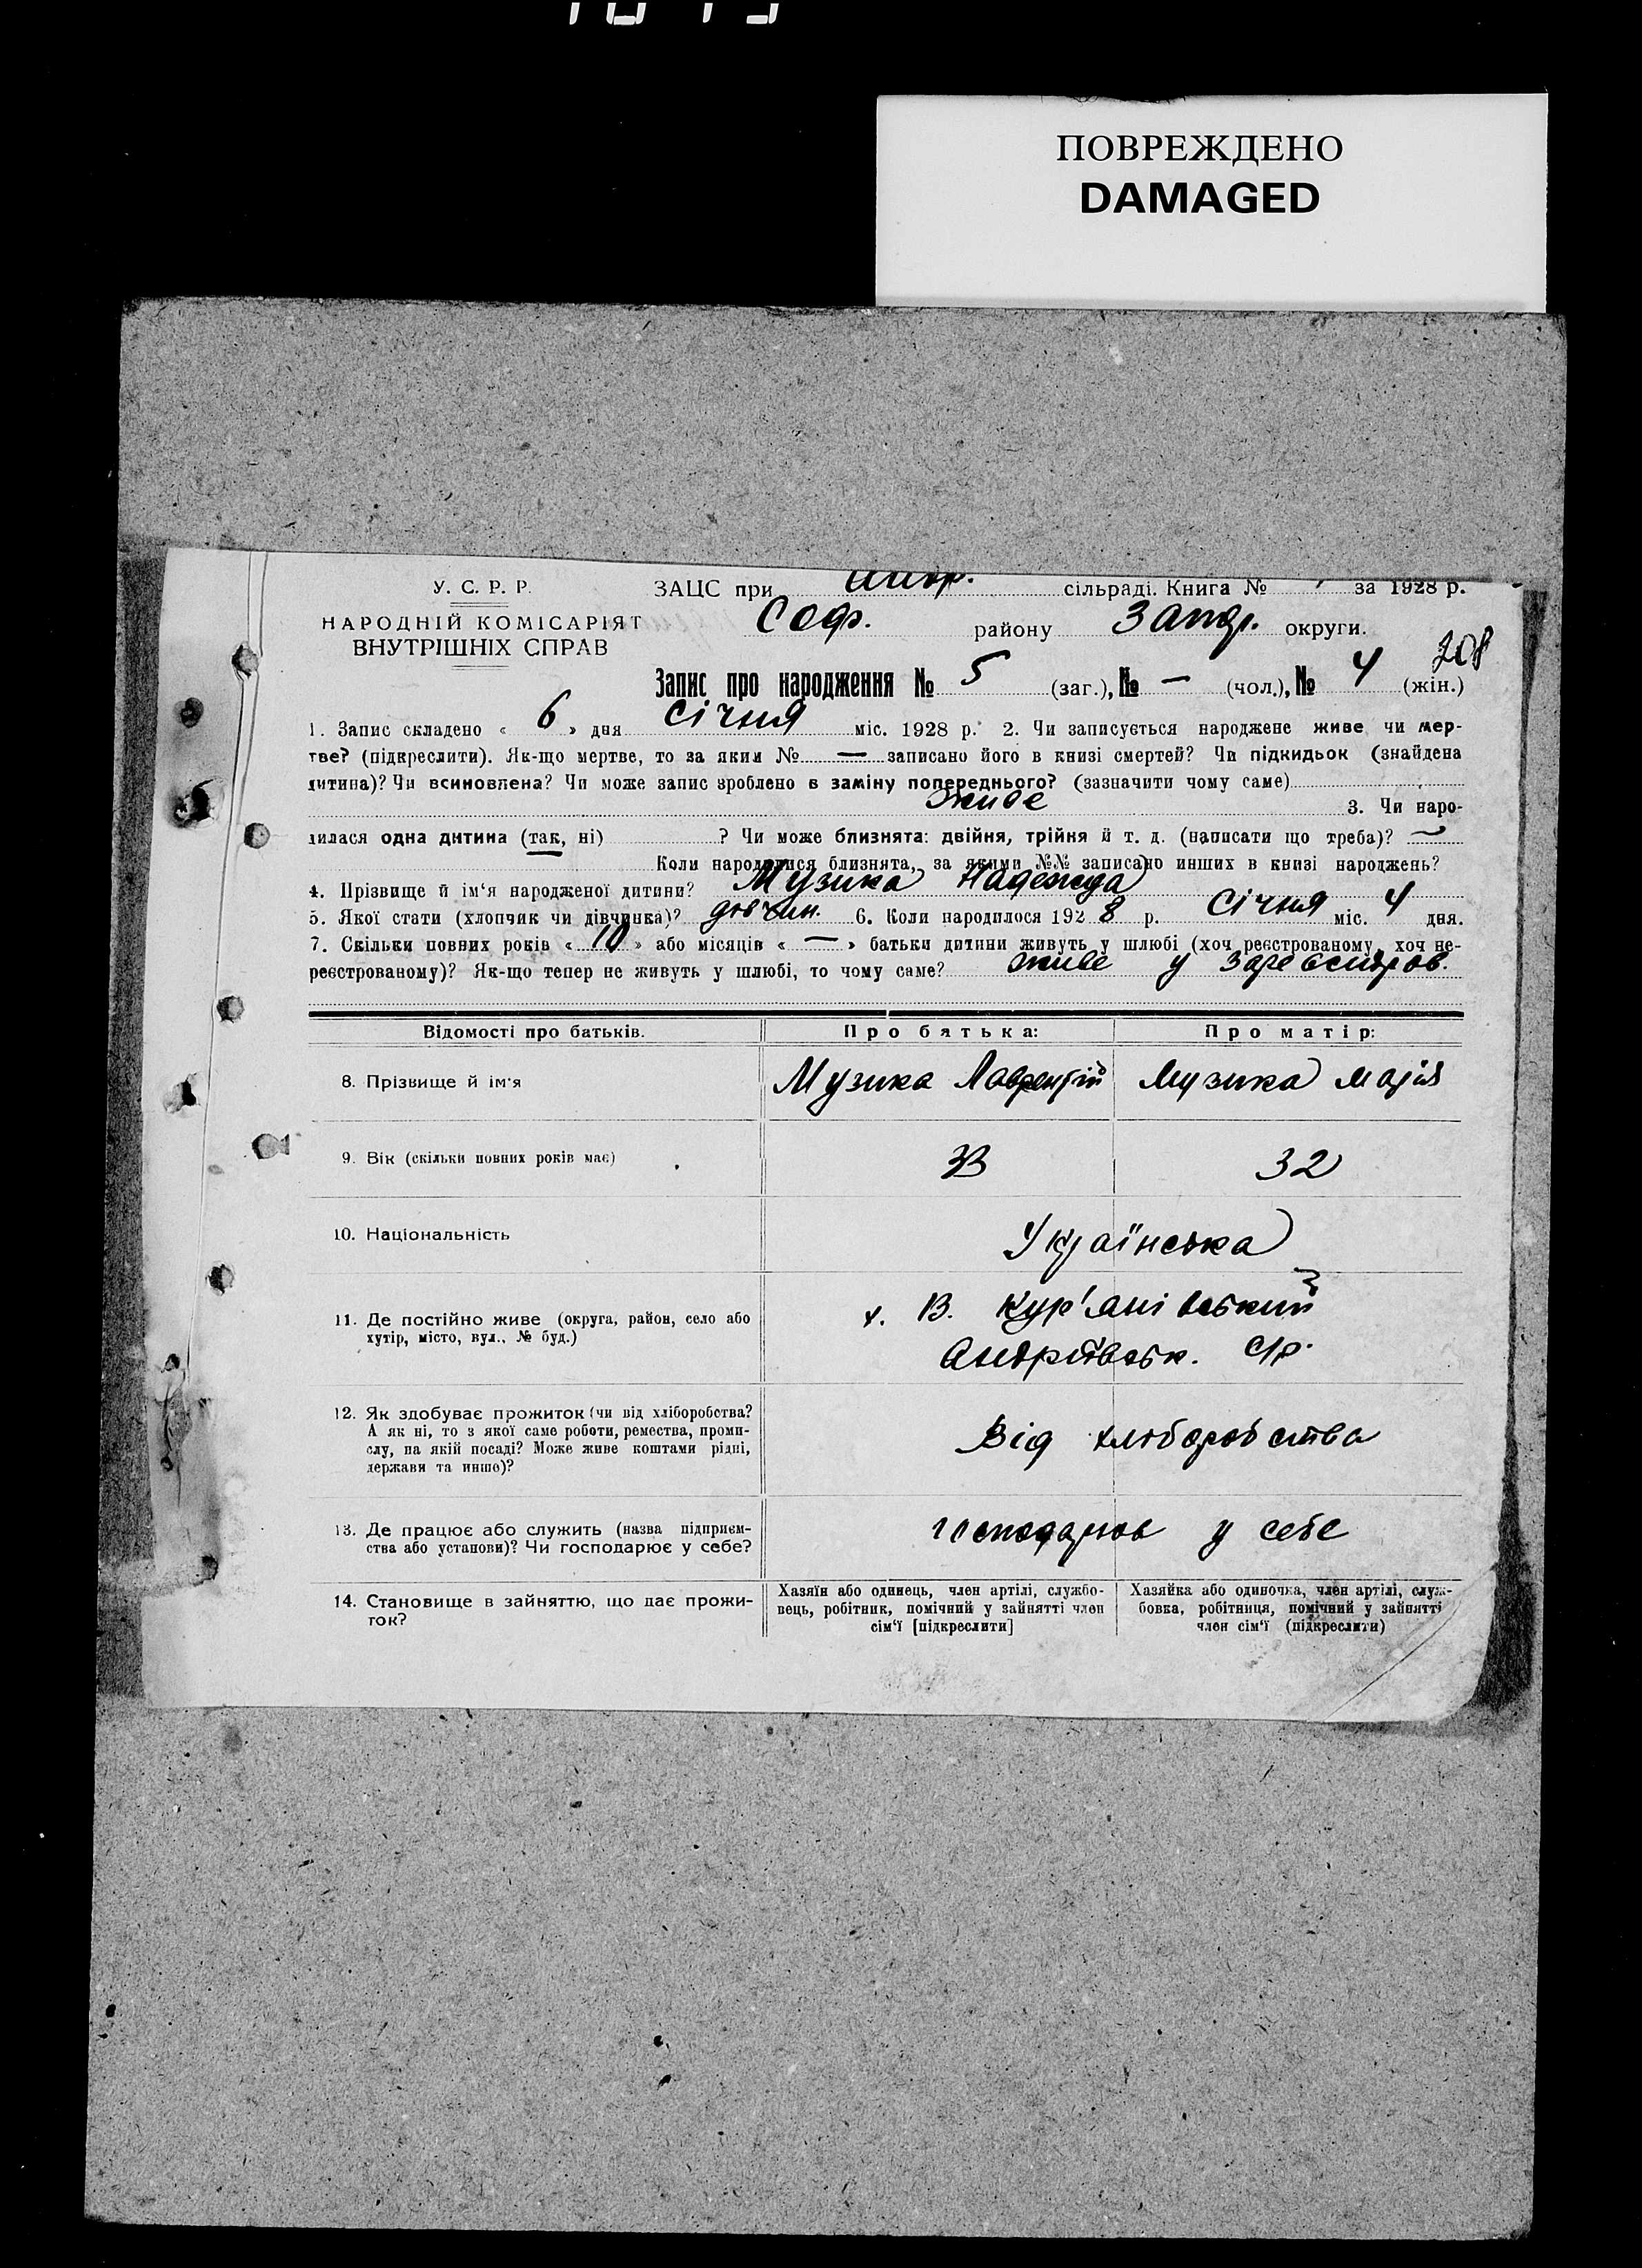 ПОВРЕЖДЕНО
DAMAGED
У. С. Р. Р.
НАРОДНІЙ КОМІСАРІЯТ
ВНУТРІШНІХ СПРАВ
ЗАЦС при Андр. сільраді. Книга № за 1928 р.
Соф. району Запор. округи.
208
Запис про народження № 5 (заг.), № — (чол.), № 4 (жін.)
1. Запис складено « 6 » дня Січня міс. 1928 р. 2. Чи записується народжене живе чи мер-
тве? (підкреслити). Як-що мертве, то за яким № — записано його в книзі смертей? Чи підкидьок (знайдена
дитина)? Чи всиновлена? Чи може запис зроблено в заміну попереднього? (зазначити чому саме)
живе 3. Чи наро-
дилася одна дитина (так, ні) ? Чи може близнята: двійня, трійня й т. д. (написати що треба)? —
Коли народилися близнята, за якими №№ записано инших в книзі народжень?
4. Прізвище й ім'я народженої дитини? Музика Надежда
5. Якої стати (хлопчик чи дівчинка)? дівчин. 6. Коли народилося 1928 р. Січня міс. 4 дня.
7. Скільки повних років « 10 » або місяців « — » батьки дитини живуть у шлюбі (хоч реєстрованому, хоч не-
реєстрованому)? Як-що тепер не живуть у шлюбі, то чому саме? живе у зареєстров.
Відомості про батьків. Про батька: Про матір:
8. Прізвище й ім'я Музика Лаврентій Музика Марія
9. Вік (скільки повних років має) 33 32
10. Національність Українська
11. Де постійно живе (округа, район, село або
хутір, місто, вул., № буд.)
х. В. Кур'янівський
Андріївськ. с/р.
12. Як здобуває прожиток (чи від хліборобства?
А як ні, то з якої саме роботи, ремества, проми-
слу, на якій посаді? Може живе коштами рідні,
держави та инше)?
Від хліборобства
13. Де працює або служить (назва підприєм-
ства або установи)? Чи господарює у себе?
господарює у себе
14. Становище в зайняттю, що дає прожи-
ток?
Хазяїн або одинець, член артілі, службо-
вець, робітник, помічний у зайнятті член
сім'ї [підкреслити]
Хазяйка або одиночка, член артілі, служ-
бовка, робітниця, помічний у зайнятті
член сім'ї (підкреслити)